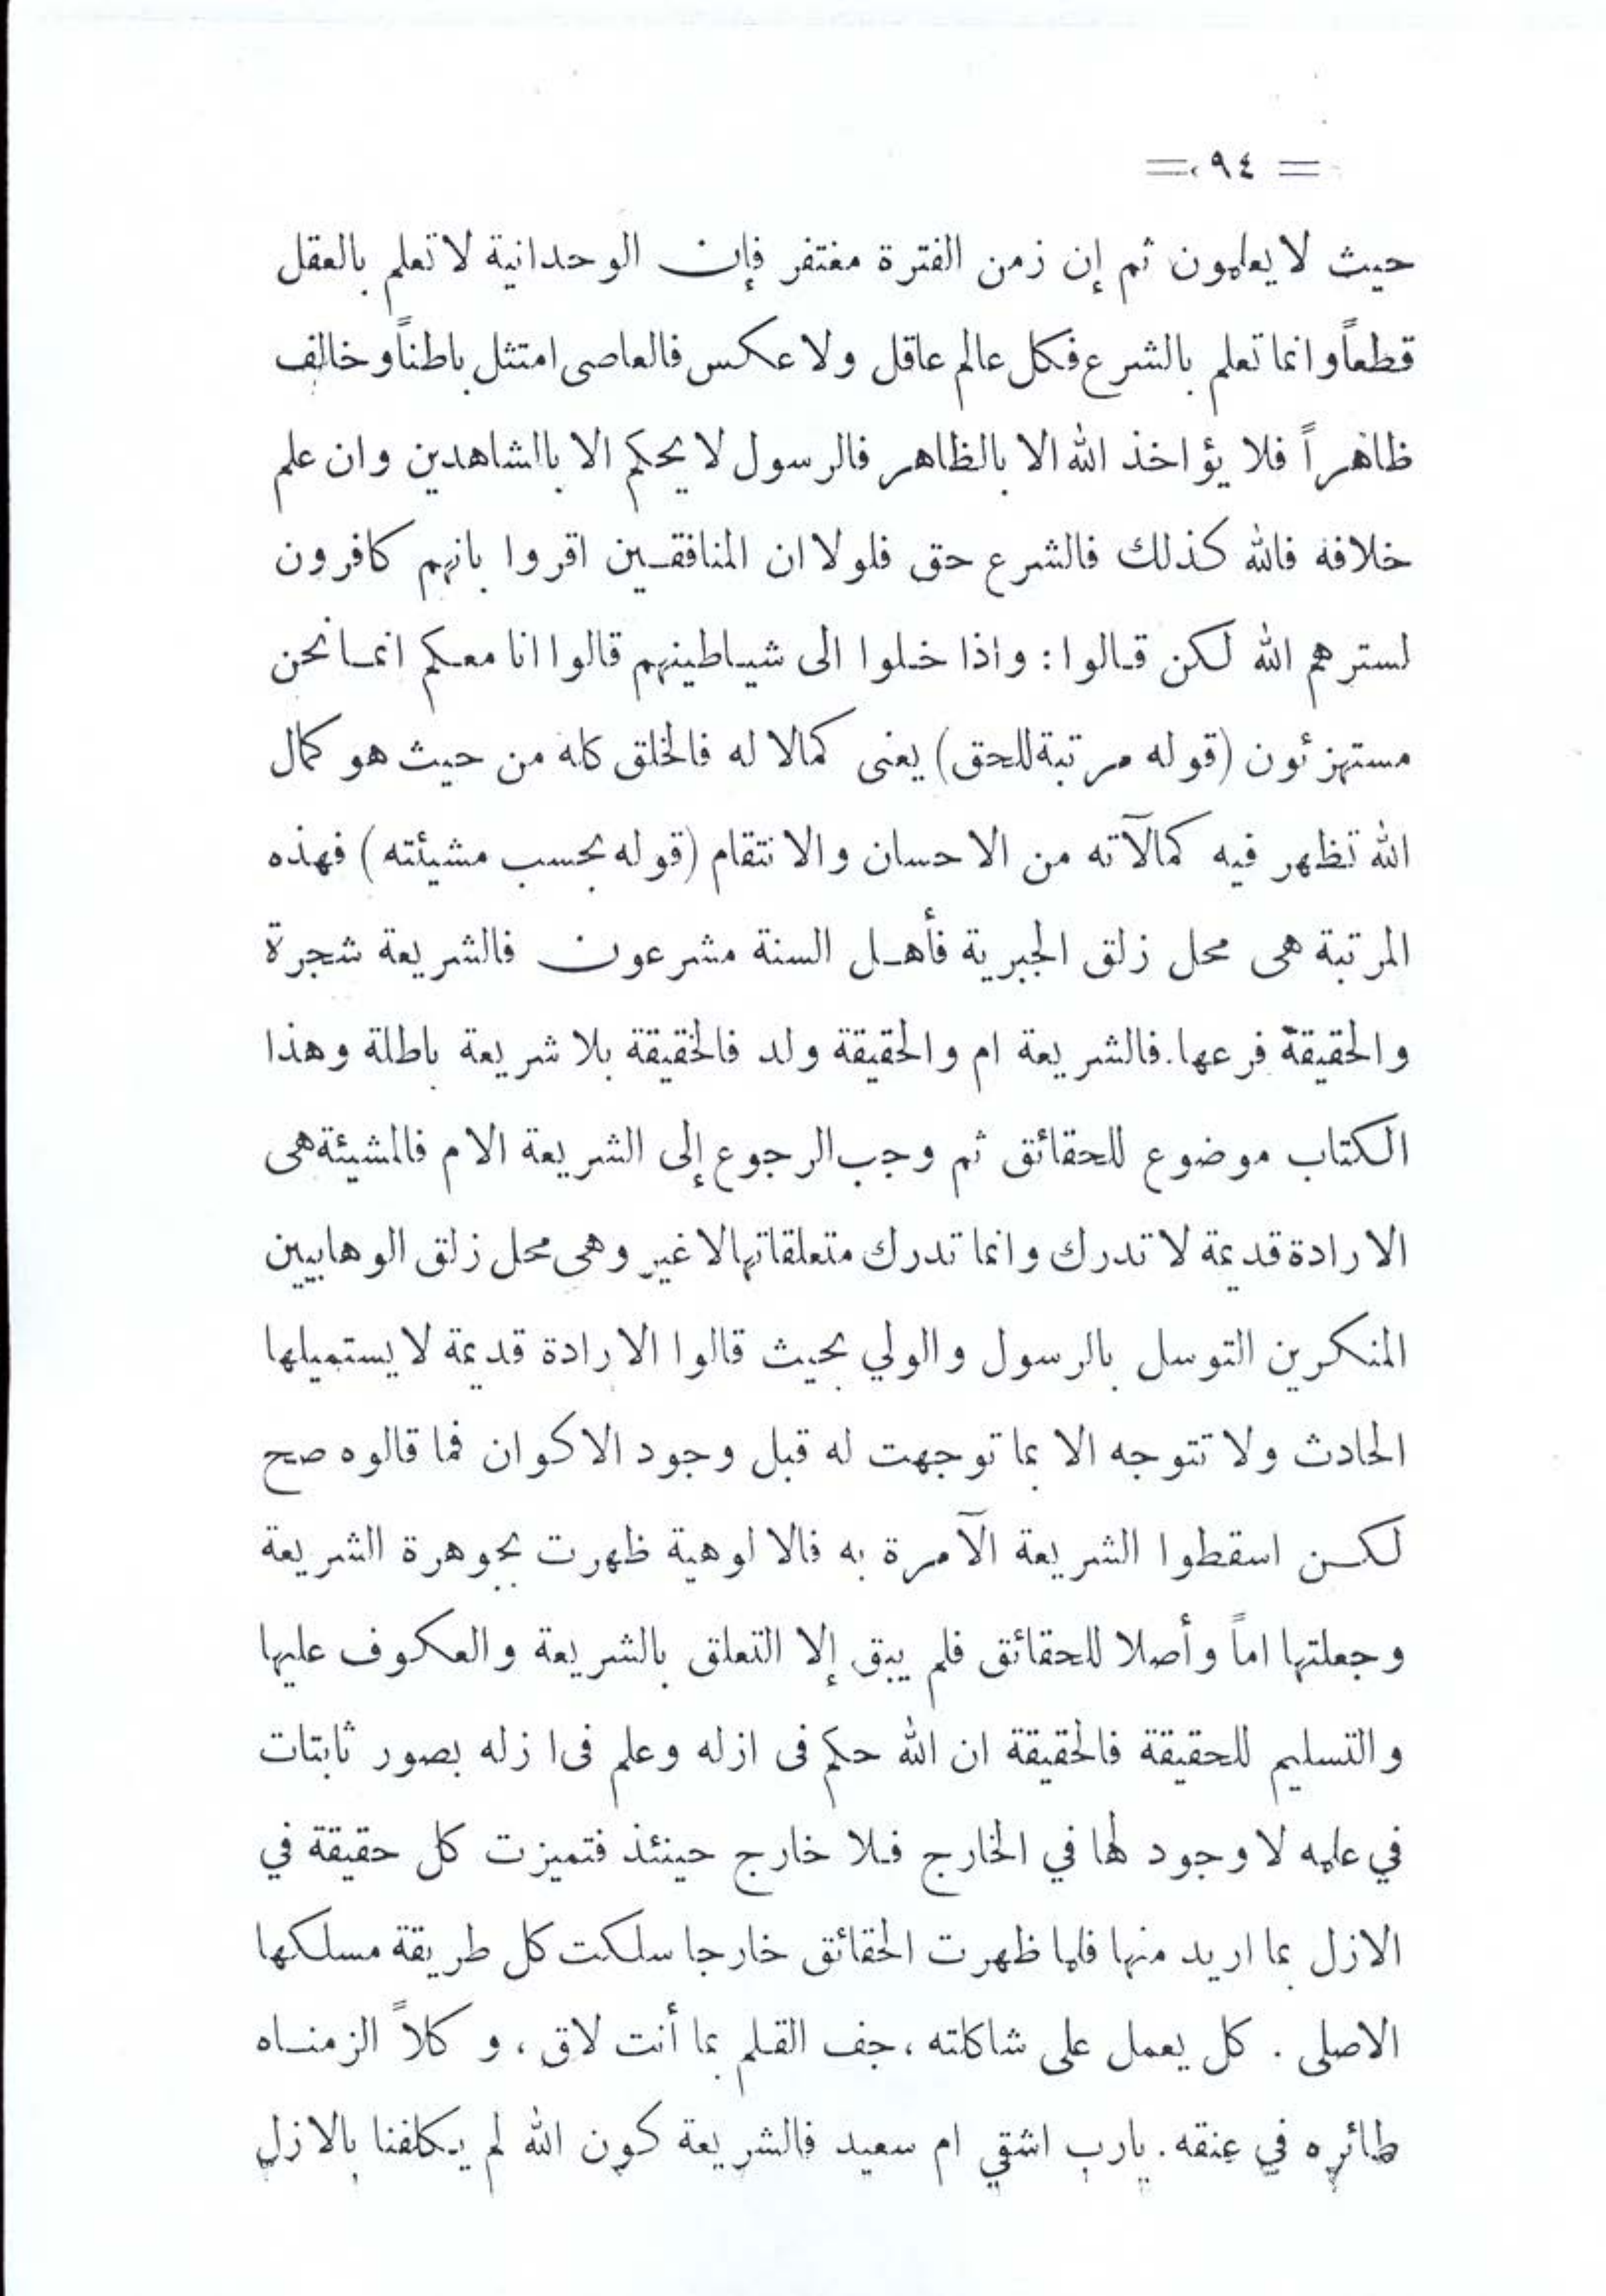 = ٩٤ =
حيث لا يعلمون ثم إن زمن الفترة مغتفر فإن الوحدانية لا تعلم بالعقل
قطعاً وانما تعلم بالشرع فكل عالم عاقل ولا عكس فالعاصى امتثل باطناً وخالف
ظاهراً فلا يؤاخذ الله الا بالظاهر فالرسول لا يحكم الا باالشاهدين وان علم
خلافه فالله كذلك فالشرع حق فلولا ان المنافقين اقروا بانهم كافرون
لسترهم الله لكن قالوا : واذا خلوا الى شياطينهم قالوا انا معكم انما نحن
مستهزئون (قوله مرتبة للحق) يعنى كمالا له فالخلق كله من حيث هو كمال
الله تظهر فيه كمالآته من الاحسان والانتقام (قوله بحسب مشيئته) فهذه
المرتبة هى محل زلق الجبرية فأهل السنة مشرعون فالشريعة شجرة
والحقيقة فرعها. فالشريعة ام والحقيقة ولد فالحقيقة بلا شريعة باطلة وهذا
الكتاب موضوع للحقائق ثم وجب الرجوع إلى الشريعة الام فالمشيئة هى
الارادة قديمة لا تدرك وانما تدرك متعلقاتها لا غير وهى محل زلق الوهابيين
المنكرين التوسل بالرسول والولي بحيث قالوا الارادة قديمة لا يستميلها
الحادث ولا تتوجه الا بما توجهت له قبل وجود الاكوان فما قالوه صح
لكن اسقطوا الشريعة الآمرة به فالالوهية ظهرت بجوهرة الشريعة
وجعلتها اماً وأصلا للحقائق فلم يبق إلا التعلق بالشريعة والعكوف عليها
والتسليم للحقيقة فالحقيقة ان الله حكم فى ازله وعلم فى ازله بصور ثابتات
في علمه لا وجود لها في الخارج فلا خارج حينئذ فتميزت كل حقيقة في
الازل بما اريد منها فلما ظهرت الحقائق خارجا سلكت كل طريقة مسلكها
الاصلى . كل يعمل على شاكلته ، جف القلم بما أنت لاق ، و كلاً الزمناه
طائره في عنقه . يارب اشقي ام سعيد فالشريعة كون الله لم يكلفنا بالازل